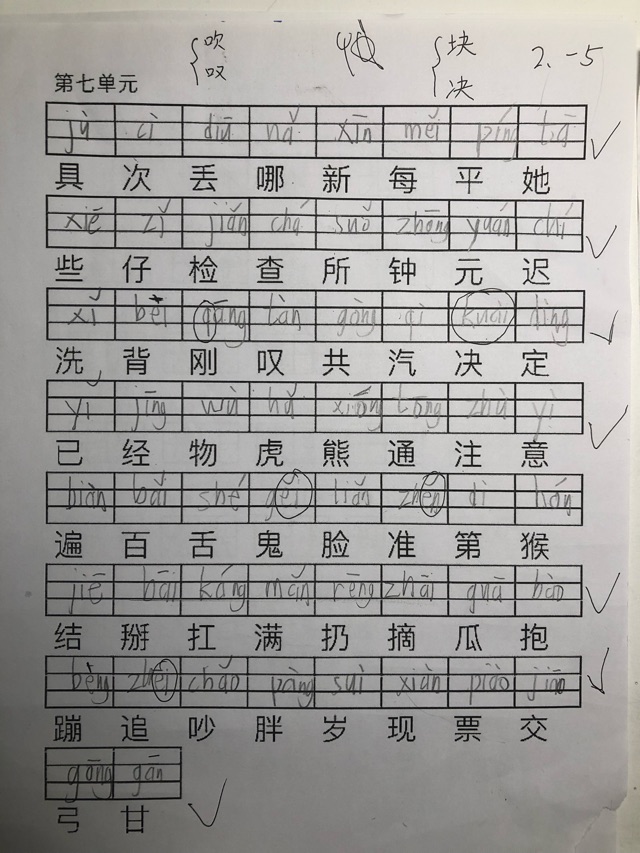 吹 块 2. -5
叹 决
第七单元
jù cì diū nǎ xīn měi píng tā
具 次 丢 哪 新 每 平 她
xiē zǐ jiǎn chá suǒ zhōng yuán chí
些 仔 检 查 所 钟 元 迟
xǐ bèi gāng tàn gòng qì kuài dìng
洗 背 刚 叹 共 汽 决 定
yǐ jīng wù hǔ xióng tōng zhù yì
已 经 物 虎 熊 通 注 意
biàn bǎi shé gěi liǎn zhěn dì hóu
遍 百 舌 鬼 脸 准 第 猴
jiē bāi káng mǎn rēng zhāi guā bào
结 掰 扛 满 扔 摘 瓜 抱
bèng zhēi chǎo pàng suì xiàn piào jiāo
蹦 追 吵 胖 岁 现 票 交
gōng gān
弓 甘